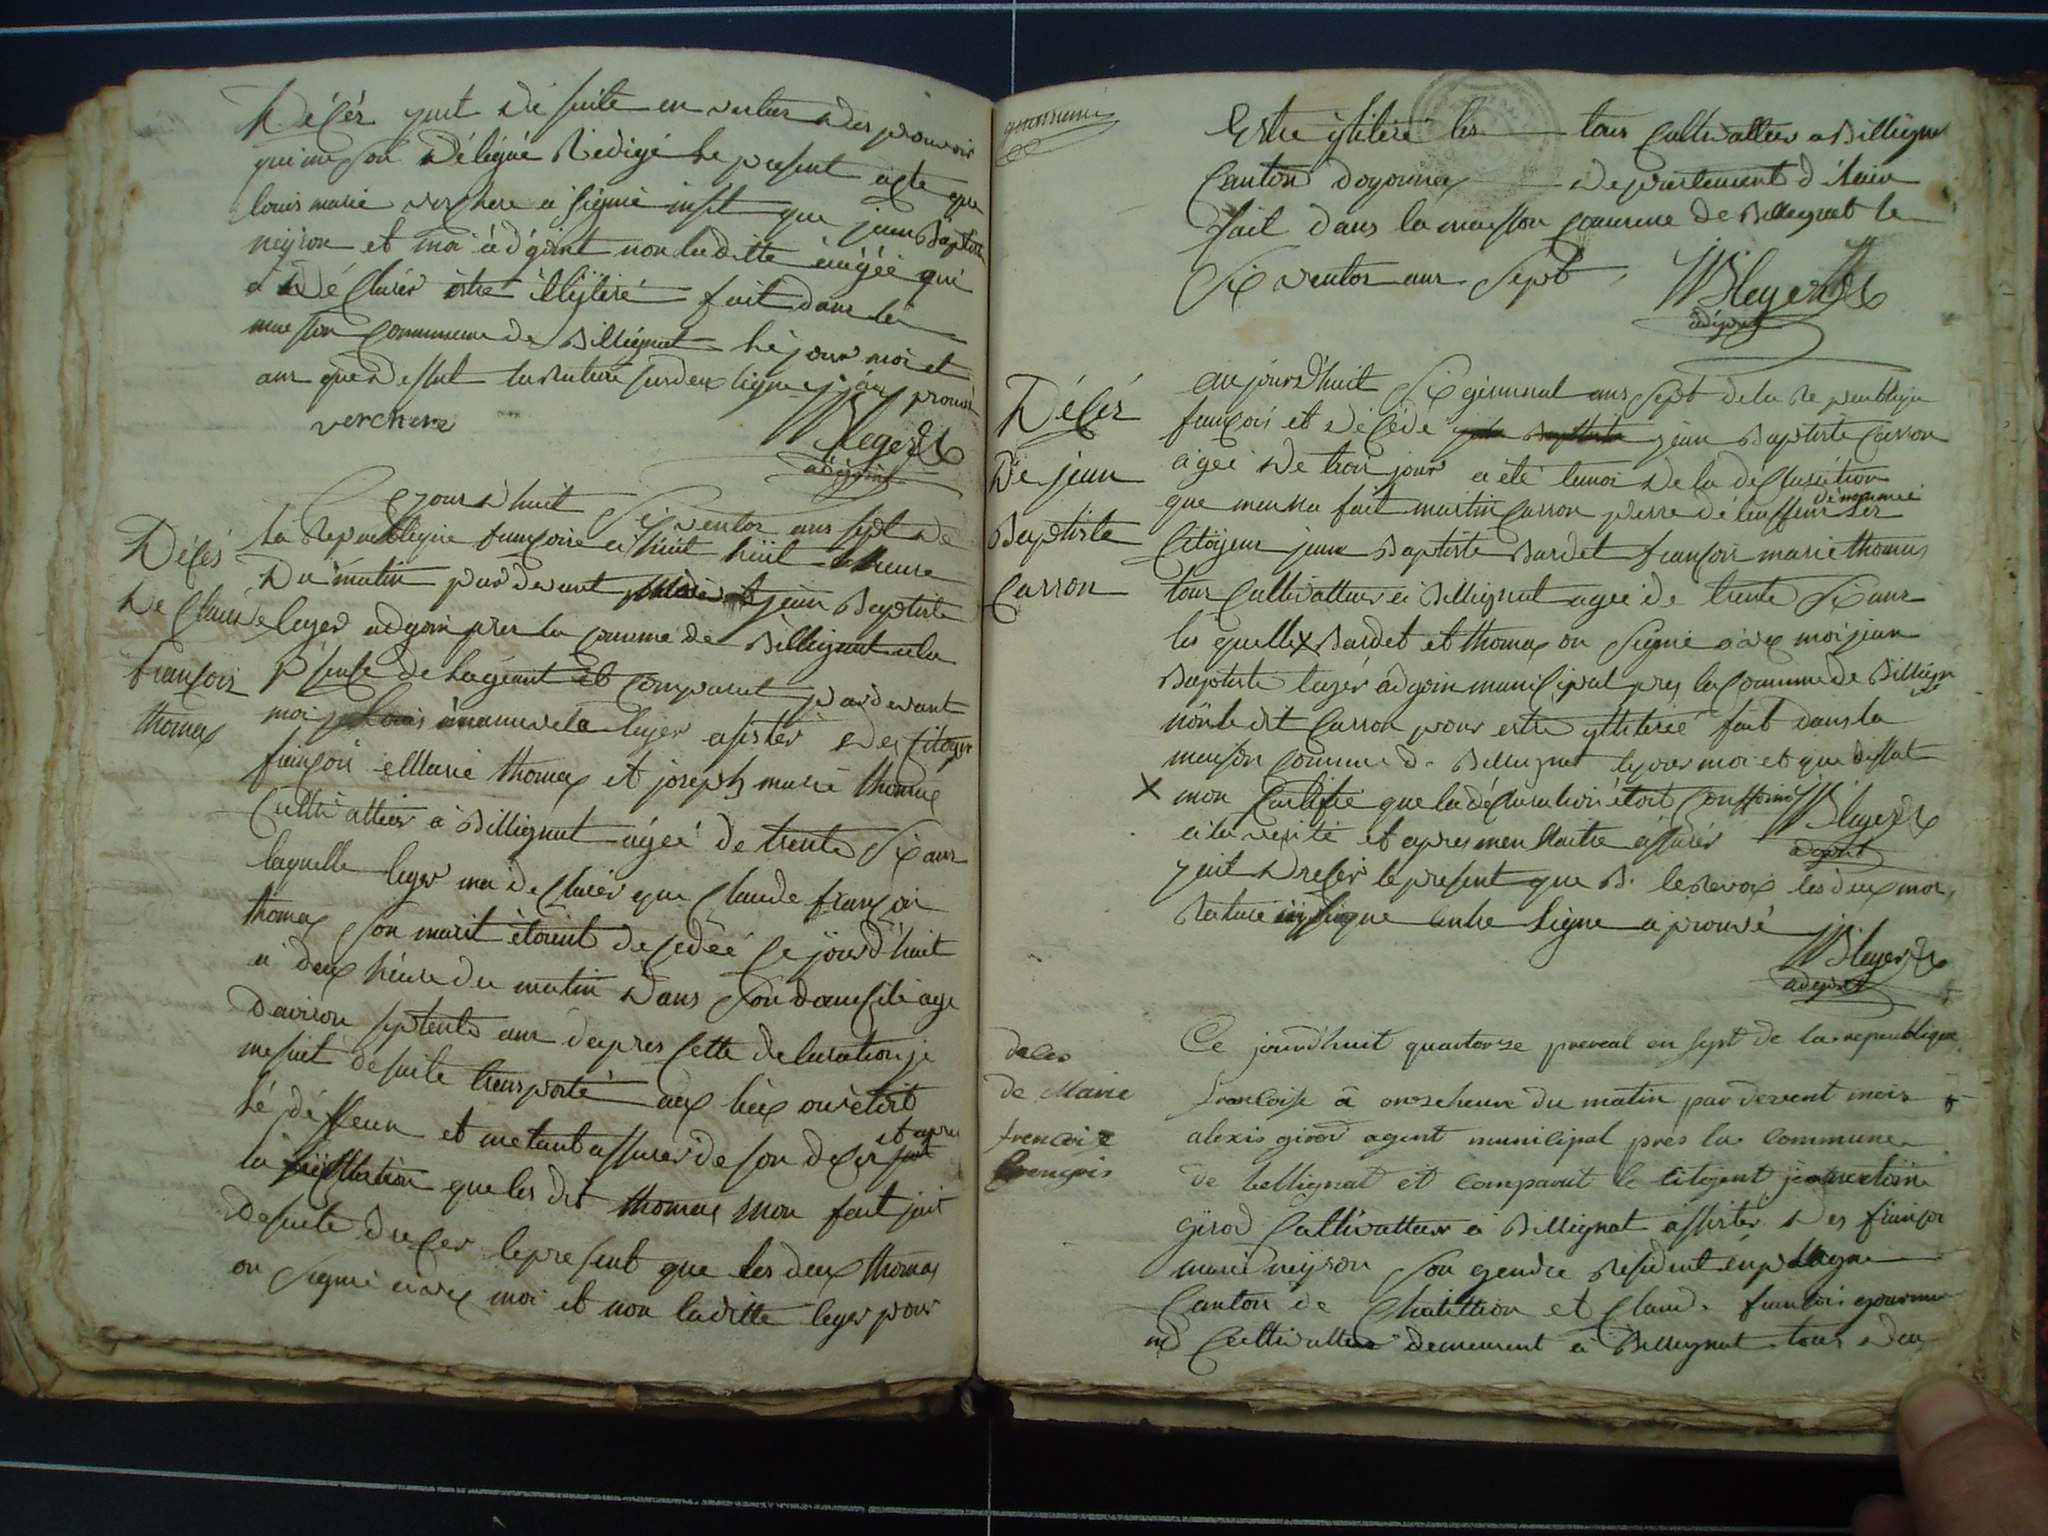 Décés jait de suite en vertus des pouvoir
qui me son délégué Rédigé le present acte que
louis marie verchere a signié insit que jean Baptiste
neyron et moi adgoint non laditte
a déClarér estre illytéré fait dans la
maison Commune de Billignat le jour moi et
ans que dessut la rature sur deux ligne
verchere
JB leger
adgoint
Ce jourd'huit Six ventos ans sept de
la Republique françoise a huit heure
Du matin par devant jean Baptiste
leger adgoin pres la comune de Billignat a la
de Lagent et comparut pardevant
moi leger asister des Citoyen
françois Marie thomas et joseph marie thomas
Cultivatteur a Billignat agéé de trente Six ans
laquelle leger ma déClarér que Claude françois
thomas son marit étoient décédéé Ce jourd'huit
a deux héure du matin dans son domicile age
danviron septente ans dapres Cette déClaration je
me suit de suite transporté aux lieux ou étoit
lé déffeun et metant assurer de son décés et apres
la que les dit thomas mon fait jait
desuite dréCer le present que les deux thomas
on signié avec moi et non laditte leger pour
Décés
De Claude
françois
thomas
Estre ylitéré les tous Cultivatteur a Billignat
Canton doyonnax departement d'Lain
fait dans la maison Commune de Billignat le
Six ventos ans Sept
JB leger
adgoint
Décés
De jean
Baptiste
Carron
aujourd'huit Six germinal ans Sept de la Republique
françois et décédé jean Baptiste Carron
agéé de trois jour a été de la déClaration
que men na fait martin Carron perre dé leuffent
dénommé
Citoyen jean Baptiste Bardet françois marie thomas
tous Cultivatteur a Billignat agéé de trente Six ans
les quelle X Bardet et thomas on signié avec moi jean
Baptiste legér adgoin municipal pres la Commune de Billign
non le dit Carron pour estre yllitéréé fait dans la
maison Commune de Billignat le jour moi et que dessut
X mon Certifié que la déClaration étoit Conforme
a la verité et apres men naitre assurér
JB leger
adgoint
jait dreCér le present que les deux mot
Rature ligne entre ligne aprouvé
JB leger
adgoint
deces
de Marie
francoise
francois
Ce jourd'huit quatorze prereal en sept de la republique
francoise a onze heure du matin par devent moi
alexis girod agent municipal prés la commune
de bellignat et comparut le citoyent
girod Cultivatteur a Billignat assistér des françoi
marie neyron son gendre résident
Canton de Chatillion et Claude francois gourma
nd Cultivatteur demeurent a Billignat tous deux